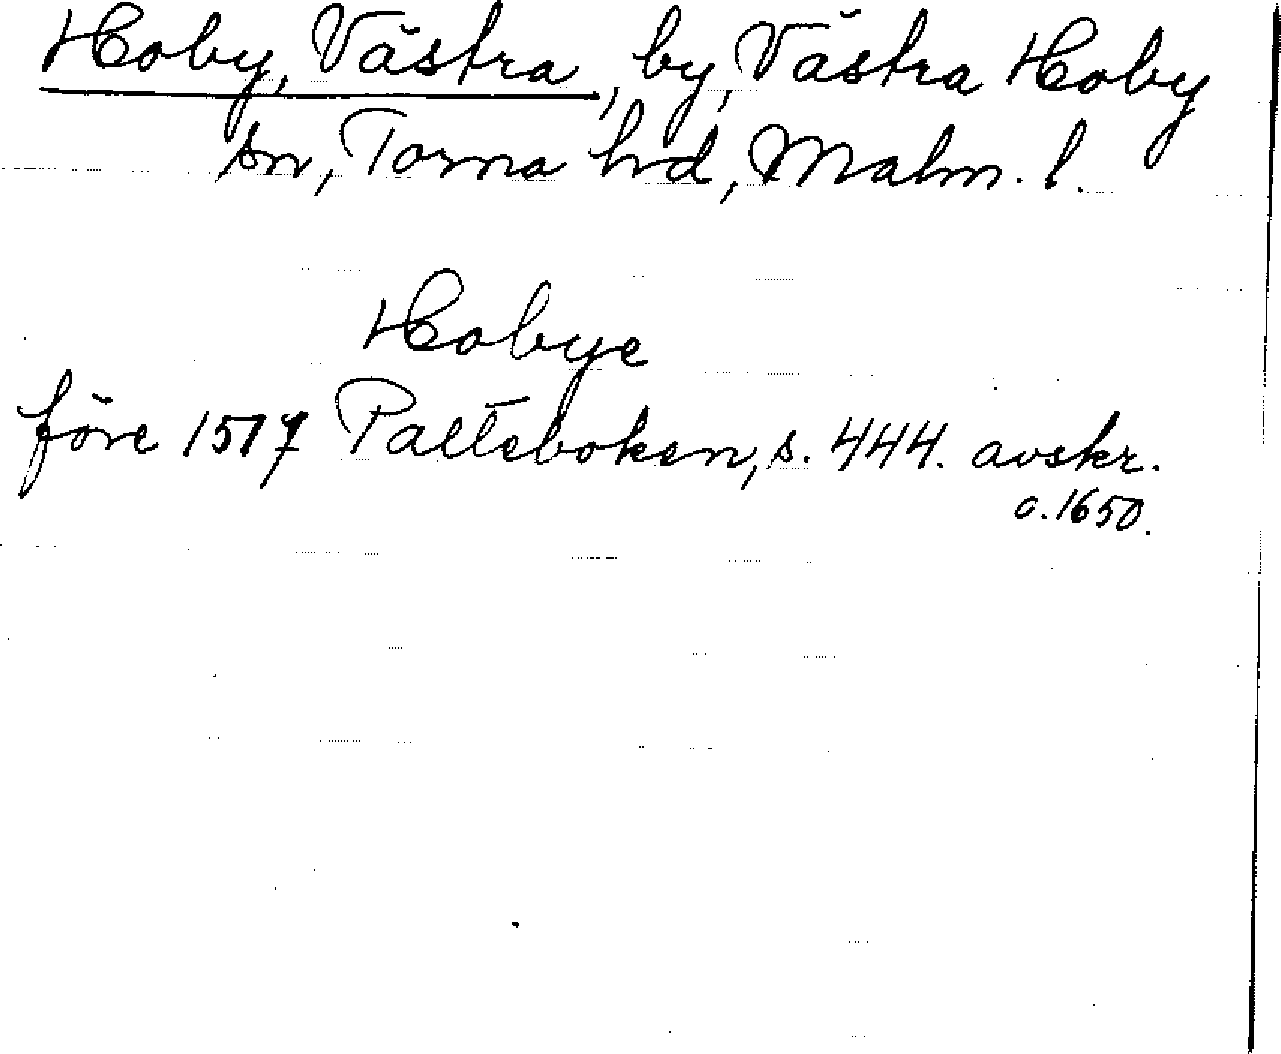 Hoby, Västra, by, Västra Hoby
sn, Torna hrd, Malm. l.
Hobye
före 1517 Palteboken, s. 444. avskr.
c. 1650.